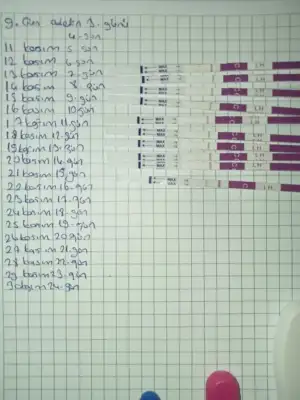 9. Gün adetin 3. günü
4. gün
11 kasım 5. gün
12 kasım 6. gün
13 kasım 7. gün
14 kasım 8. gün
15 kasım 9. gün
16 kasım 10. gün
17 kasım 11. gün
18 kasım 12. gün
19 kasım 13. gün
20 kasım 14. gün
21 kasım 15. gün
22 kasım 16. gün
23 kasım 17. gün
24 kasım 18. gün
25 kasım 19. gün
26 kasım 20 gün
27 kasım 21. gün
28 kasım 22. gün
29 kasım 23. gün
30 kasım 24. gün